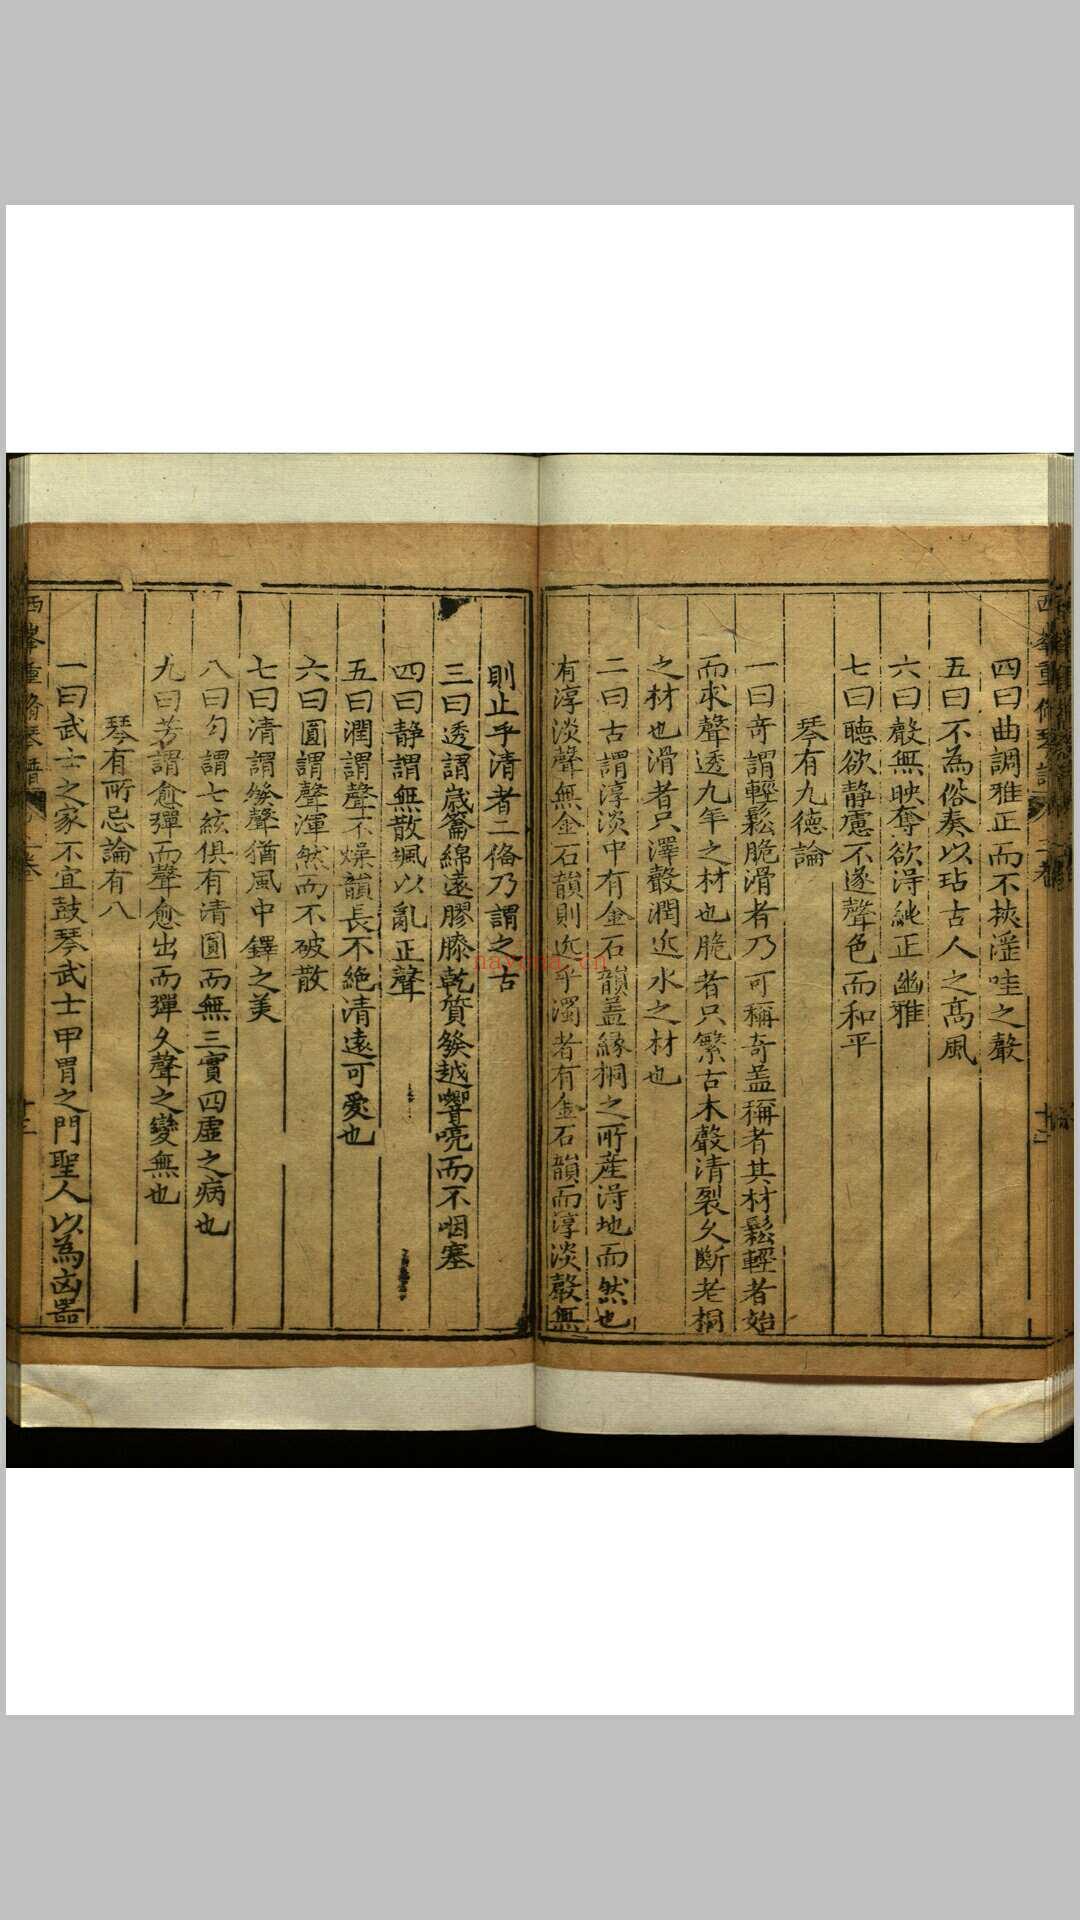 四曰曲調雅正而不挾滛哇之聲
五曰不為俗奏以玷古人之髙風
六曰聲無映奪欲淂純正幽雅
七曰聴欲静慮不遂聲色而和平
琴有九德論
一曰竒謂輕鬆脆滑者乃可稱竒盖稱者其材鬆輕者始
而求聲透九年之材也脆者只繁古木聲清裂乆斷老桐
之材也滑者只澤聲潤近水之材也
二曰古謂淳淡中有金石韻盖縁桐之所産淂地而然也
有淳淡聲無金石韻則近乎濁者有金石韻而淳淡聲無
則止乎清者二俻乃謂之古
三曰透謂歳籥綿遠膠膝乾質發越響喨而不咽塞
四曰静謂無散颯以亂正聲
五曰潤謂聲不燥韻長不絶清遠可愛也
六曰圓謂聲渾然而不破散
七曰清謂發聲猶風中鐸之美
八曰匀謂七絃俱有清圓而無三實四虛之病也
九曰芳謂愈彈而聲愈出而彈乆聲之變無也
琴有所忌論有八
一曰武士之家不宜鼓琴武士甲胄之門聖人以為凶噐
西峯重修琴譜
十三
nayona.cn